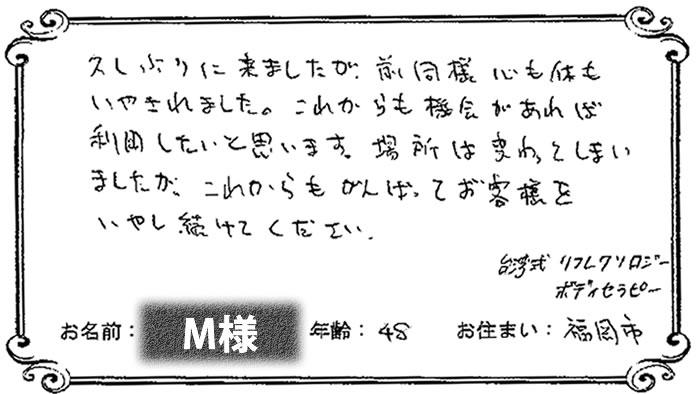 久しぶりに来ましたが、前回同様 心も体も
いやされました。これからも機会があれば
利用したいと思います。場所は変わってしまい
ましたが、これからもがんばってお客様を
いやし続けてください。
台湾式 リフレクソロジー
ボディセラピー
お名前： M様 年齢： 48 お住まい： 福岡市